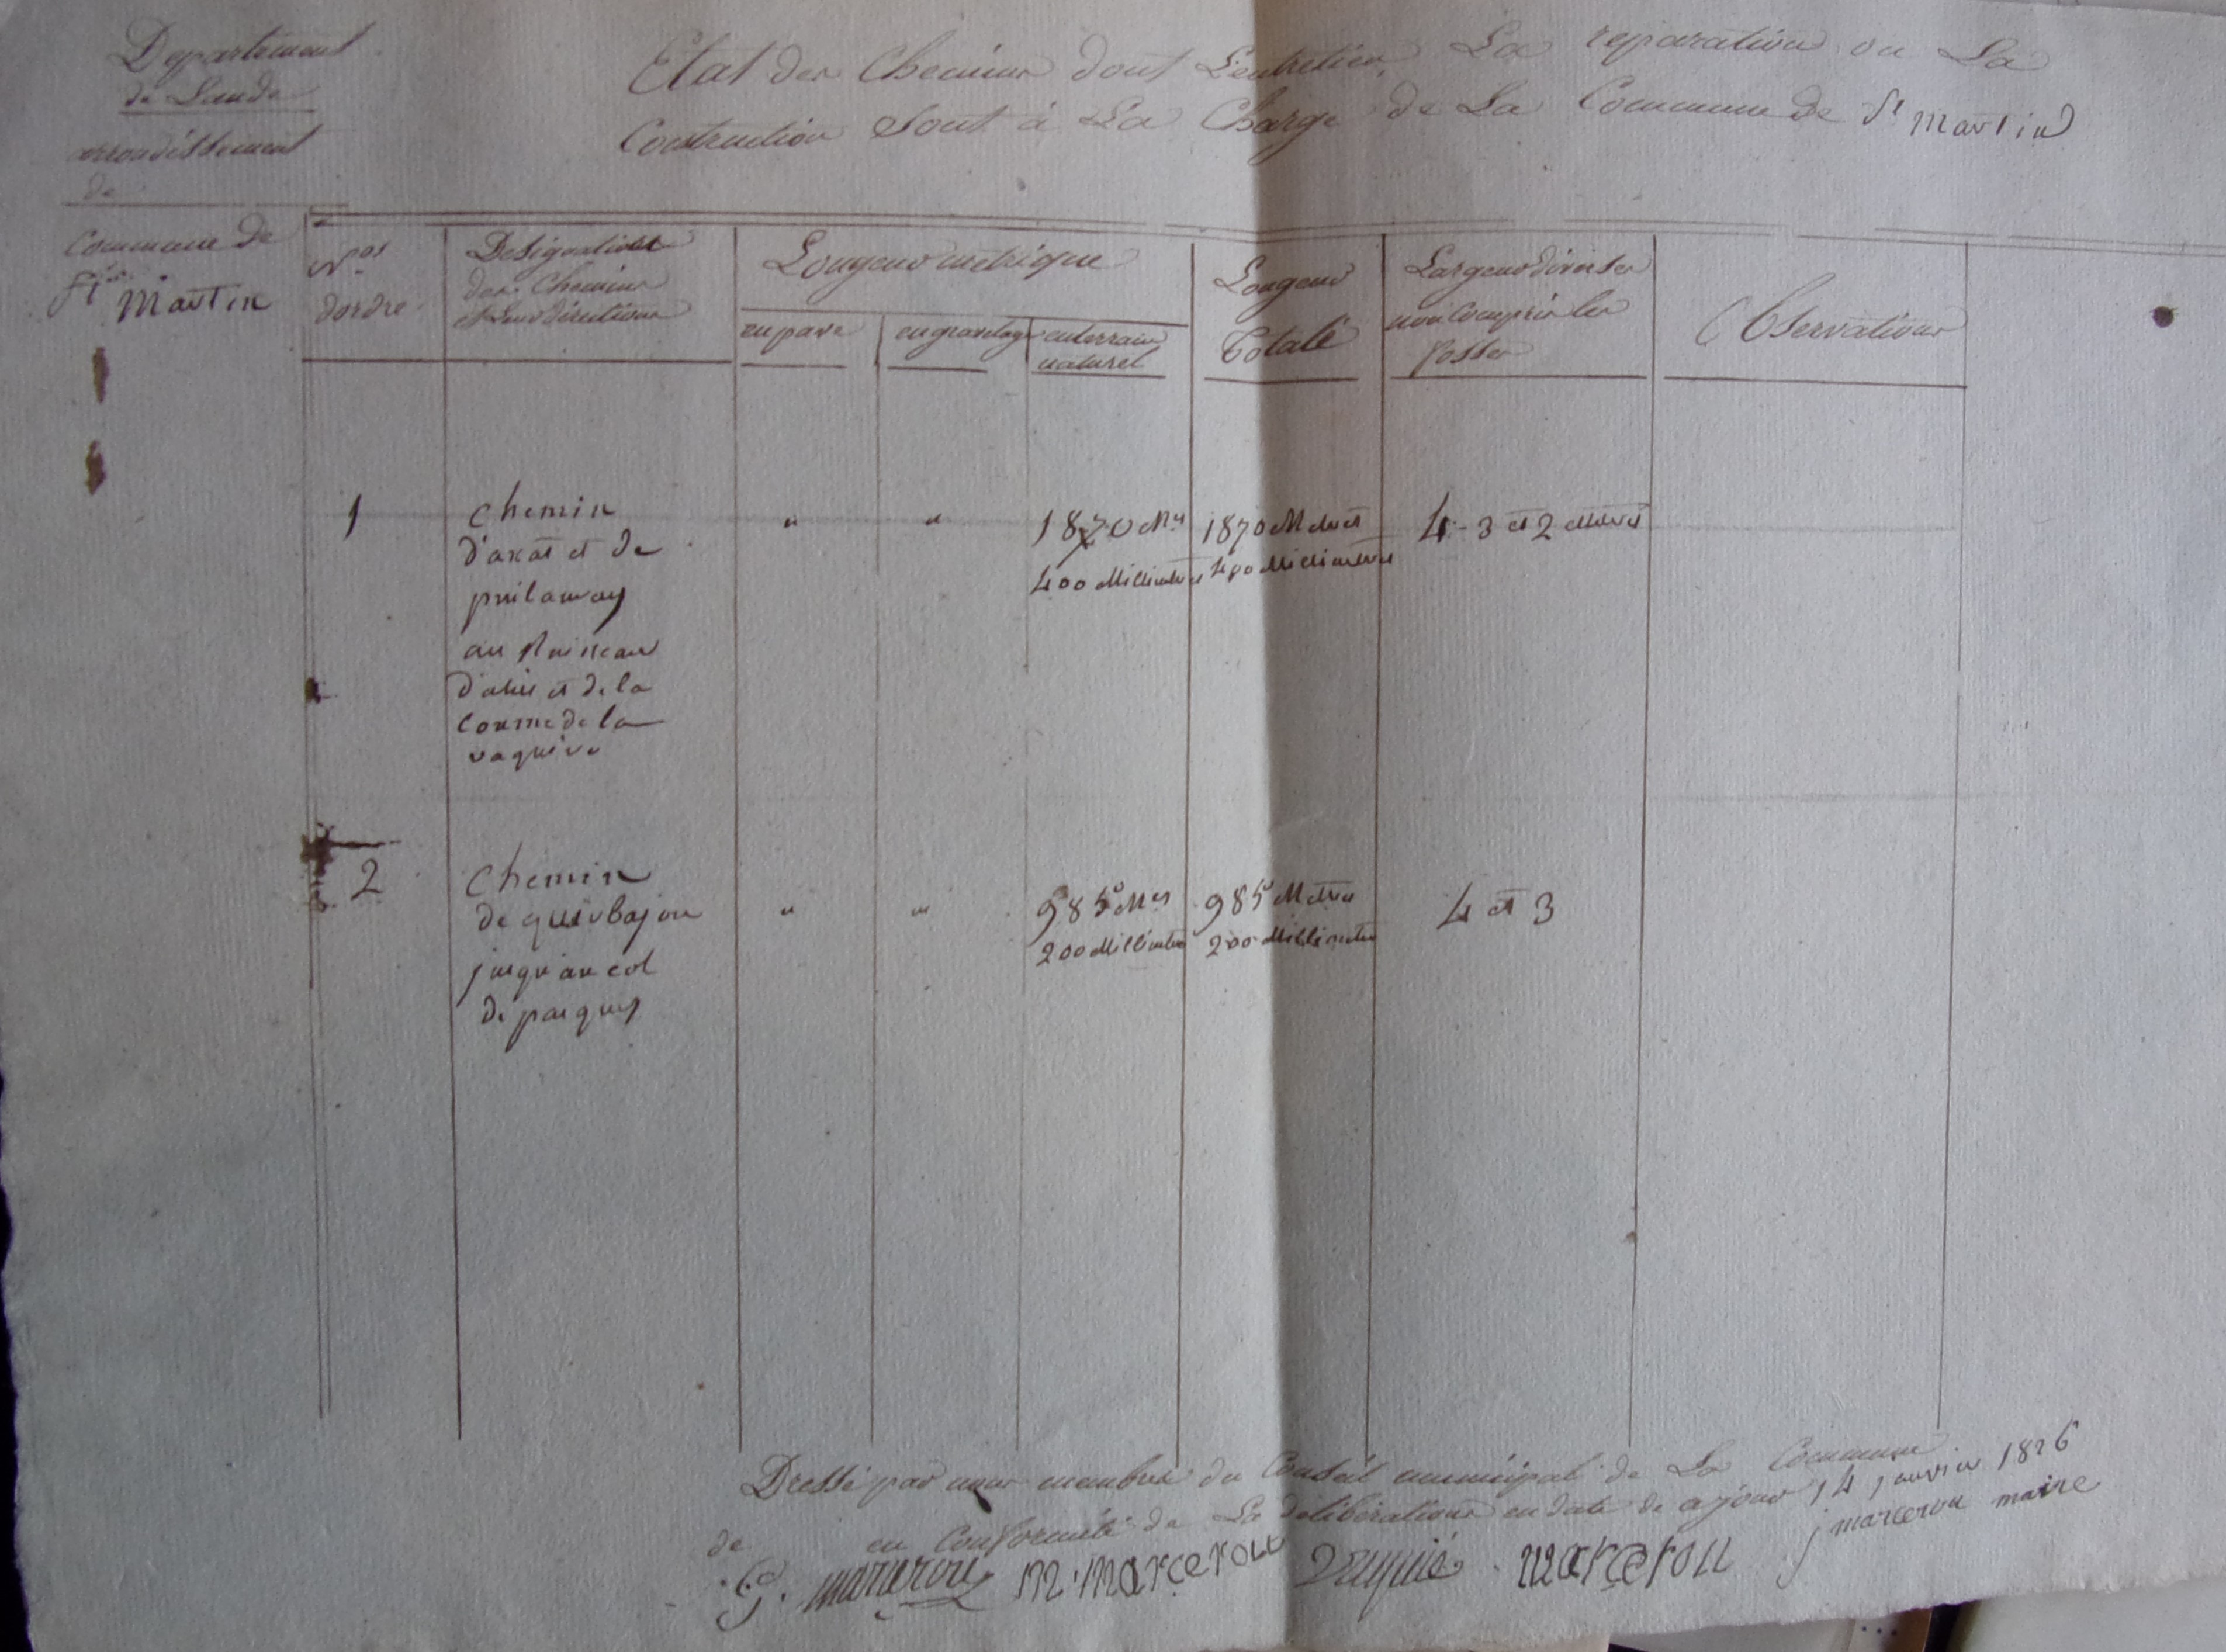 Departement
de Laude
arrondissement
de
Commune de
St Martin
Etat des Chemins dont L'entretien, La reparation ou La
Construction Sont à La Charge de La Commune de St Martin
Nos
dordre
Designation
des Chemins
et Leur directions
Longeur métrique
en pavé
en gravelage
en terrain
naturel
Longeur
Totale
Largeur diverses
non Compris les
fosses
Observations
1
chemin
d'axat et de
puilauray
au Ruisseau
et de la
Coume de la
" "
1870 Mes
400 Millimetres
1870 Metres
400 Millimetres
4 - 3 et 2 metres
2
Chemin
de quirbajou
jusqu'au col
de
" "
985 Mes
200 Millimetres
985 Metres
200 Millimetres
4 et 3
Dressé par nous membres du Conseil municipal de La Commune
de en Conformité de La deliberation en date de ajour 14 janvier 1826
G. marcerou M. Marcerou marcerou j marcerou maire